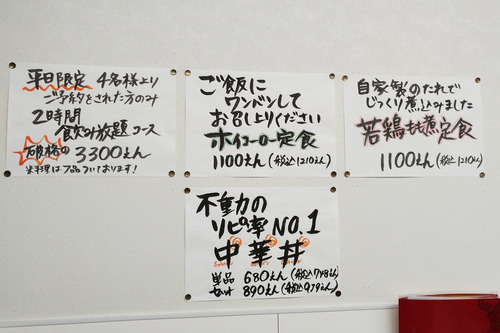 平日限定 4名様より
ご予約をされた方のみ
2時間
飲み放題コース
破格の 3300えん
※料理は7品ついております!
ご飯に
ワンバンして
お召し上りください
ホイコーロー定食
1100えん(税込1210えん)
自家製のたれで
じっくり煮込みました
若鶏もも煮定食
1100えん(税込1210えん)
不動の
リピ率NO.1
中華丼
単品 680えん(税込748えん)
セット 890えん(税込979えん)